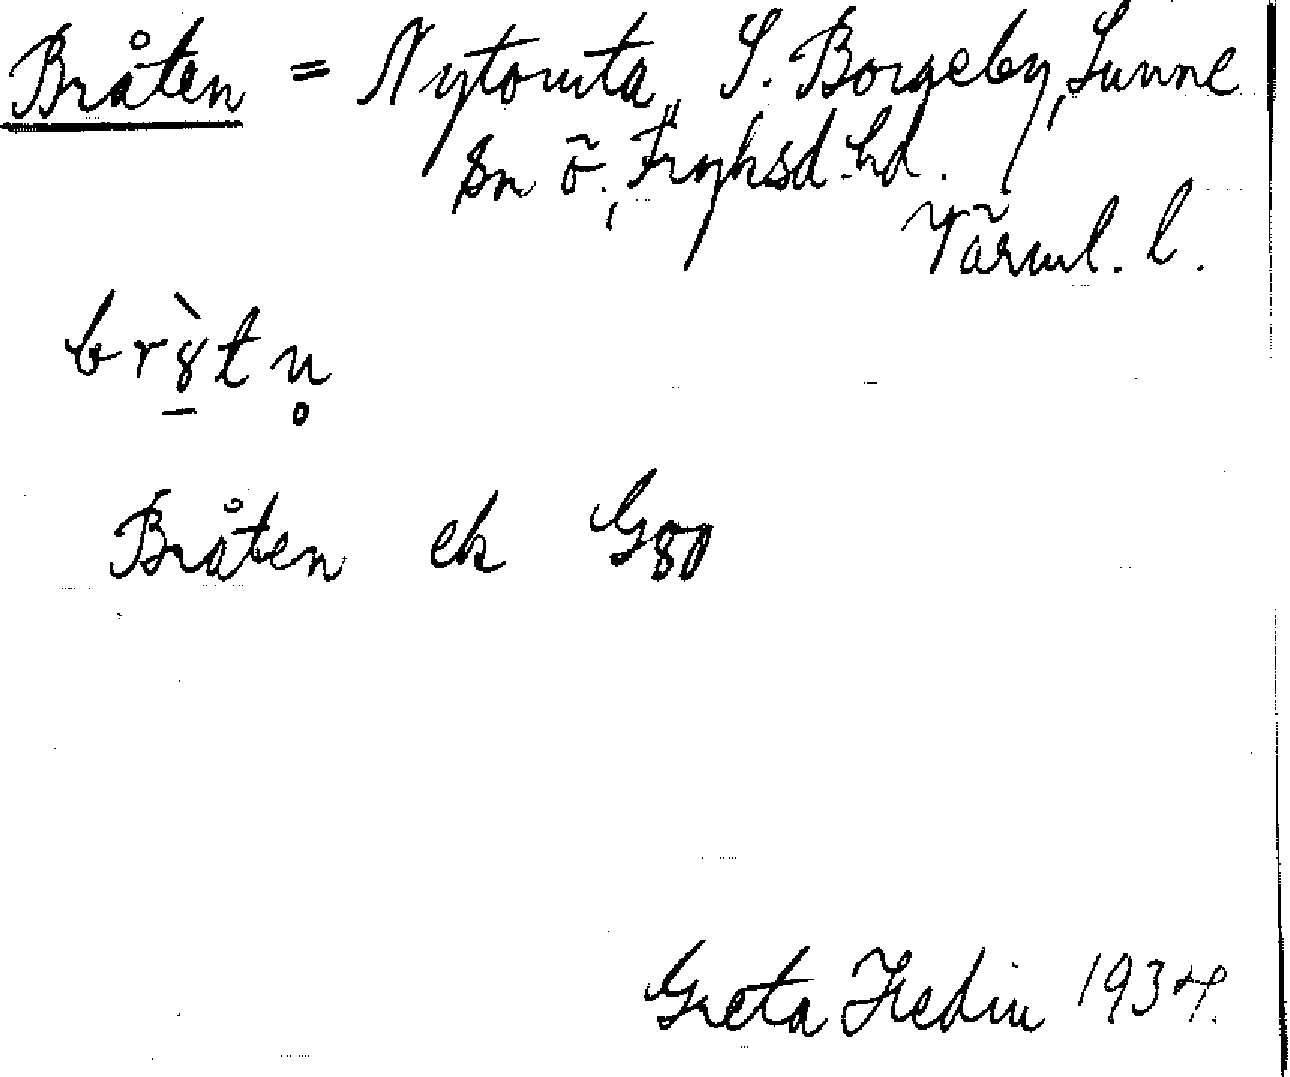 Bråten = Nytomta, S. Borgeby, Sunne
sn ö., Fryksd. hd.
Värml. l.
br8̱̀tn̥
Bråten ek G80
Greta Hedin 1934.